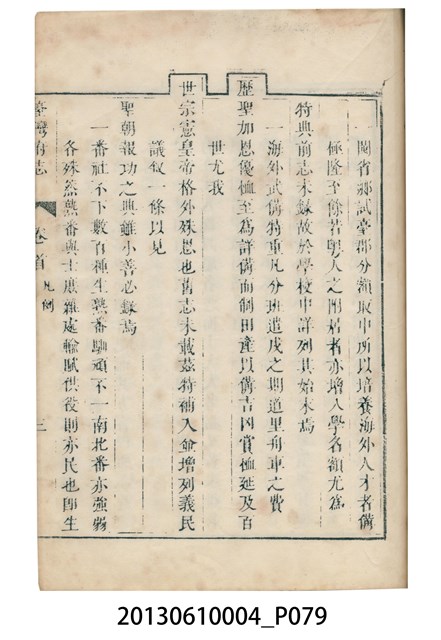 一閩省鄉試臺郡分額取中所以培養海外人才者備
極隆至餘若粵人之附居者亦增入學名額尤為
特典前志未錄故於學校中詳列其始末焉
一海外武備特重凡分班遣戍之期道里舟車之費
歷聖加恩優恤至為詳備而制田產以備吉凶賞恤延及百
世尤我
世宗憲皇帝格外殊恩也舊志未載茲特補入並增列義民
議敘一條以見
聖朝報功之典雖小善必錄焉
一番社不下數百種生熟番馴頑不一南北番亦強弱
各殊然熟番與土庶雜處輸賦供役則亦民也即生
臺灣府志 卷首 凡例 二
20130610004_P079